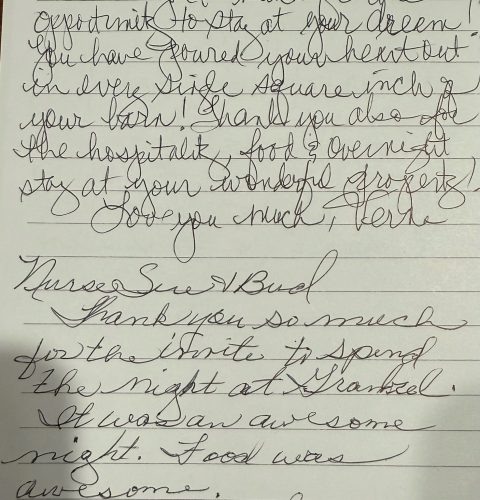 opportunity to stay at your dream!
You have poured your heart out
in every single square inch of
your barn! Thank you also for
the hospitality, food & overnight
stay at your wonderful property!
Love you much, Verna
Nurse Sue & Bud
Thank you so much
for the invite to spend
the night at
It was an awesome
night. Food was
awesome.